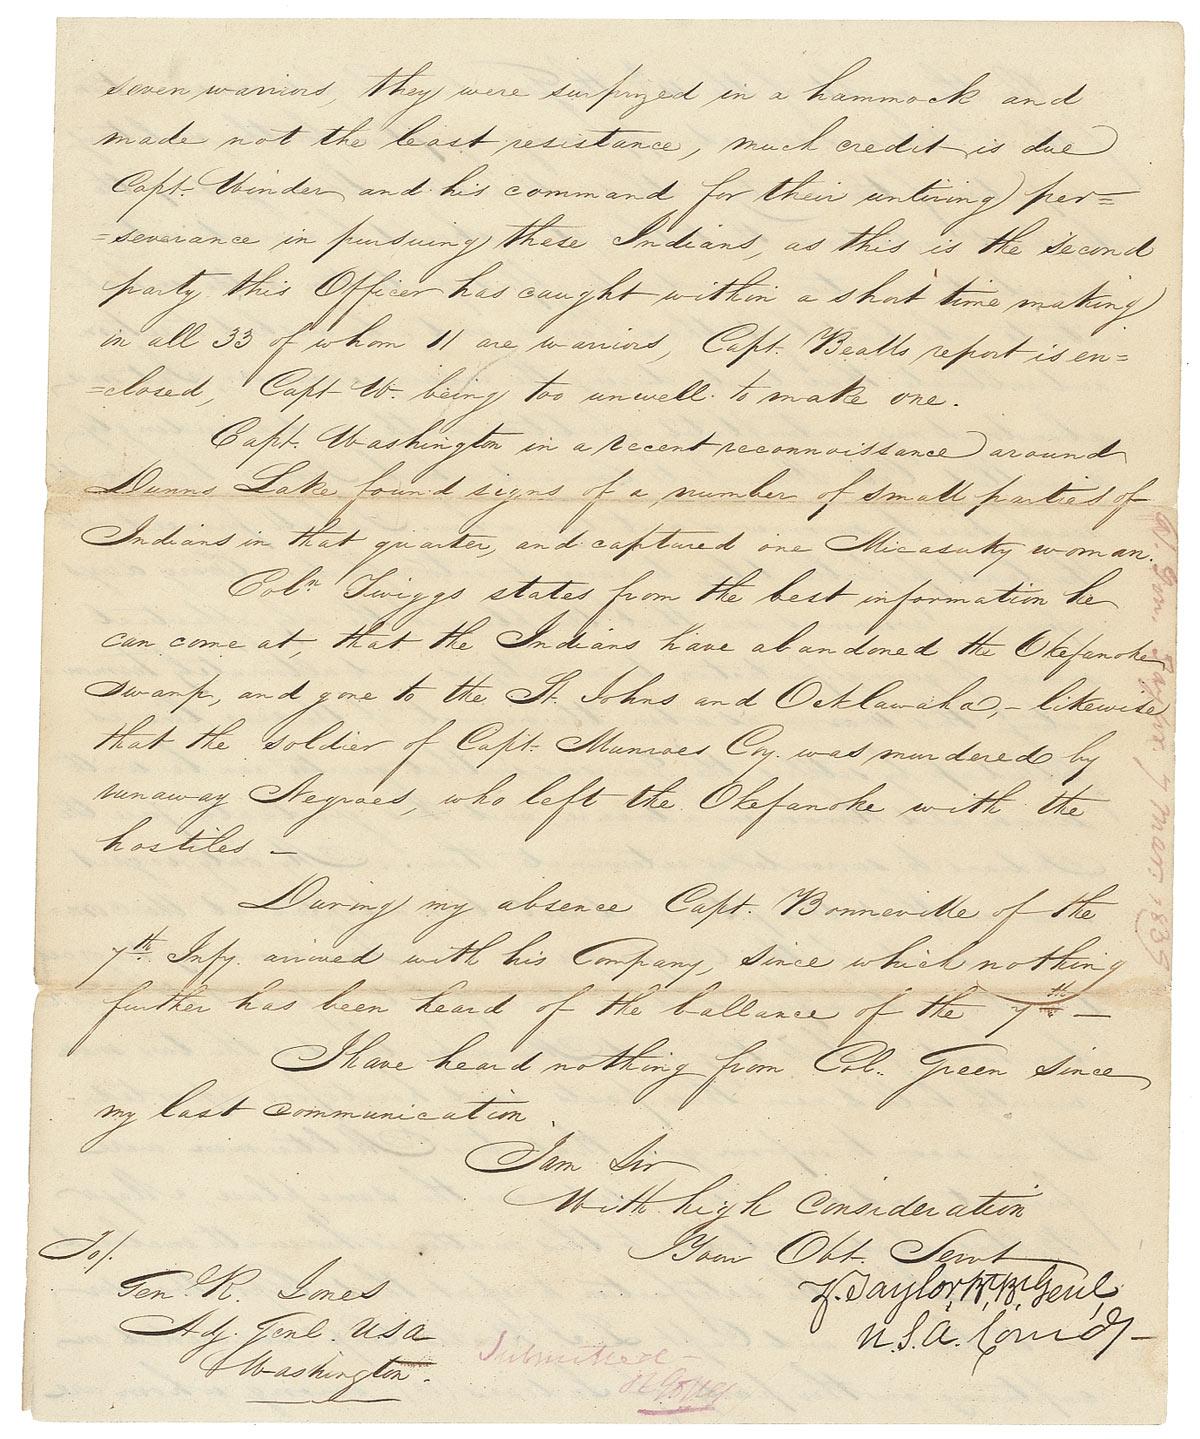 seven warriors, they were surprized in a hammock and
made not the least resistance, much credit is due
Capt. Winder and his command for their untiring per=
=severance in pursuing these Indians, as this is the second
party this Officer has caught within a short time making
in all 33 of whom 11 are warriors, Capt. Bealls report is en=
=closed, Capt W. being too unwell to make one.
Capt. Washington in a recent reconnoissance around
Dunns Lake found signs of a number of small parties of
Indians in that quarter, and captured one Micasuky woman.
Coln Twiggs states from the best information he
can come at, that the Indians have abandoned the Okefanoke
Swamp, and gone to the St. Johns and Ocklawaha, - likewise
that the soldier of Capt. Munroes Coy. was murdered by
runaway Negroes, who left the Okefanoke with the
hostiles —
During my absence Capt. Bonneville of the
7th Infy. arrived with his Company, since which nothing
further has been heard of the ballance of the 7th —
I have heard nothing from Col. Green since
my last communication
I am Sir
With high Consideration
Your Obt. Servt
Z. Taylor Bt. B. Genl,
U.S.A. Comdg —
To/.
Genl. R. Jones
Adj. Genl. USA
Washington.
Submitted —
Gen. Taylor 7 Mar. 1839